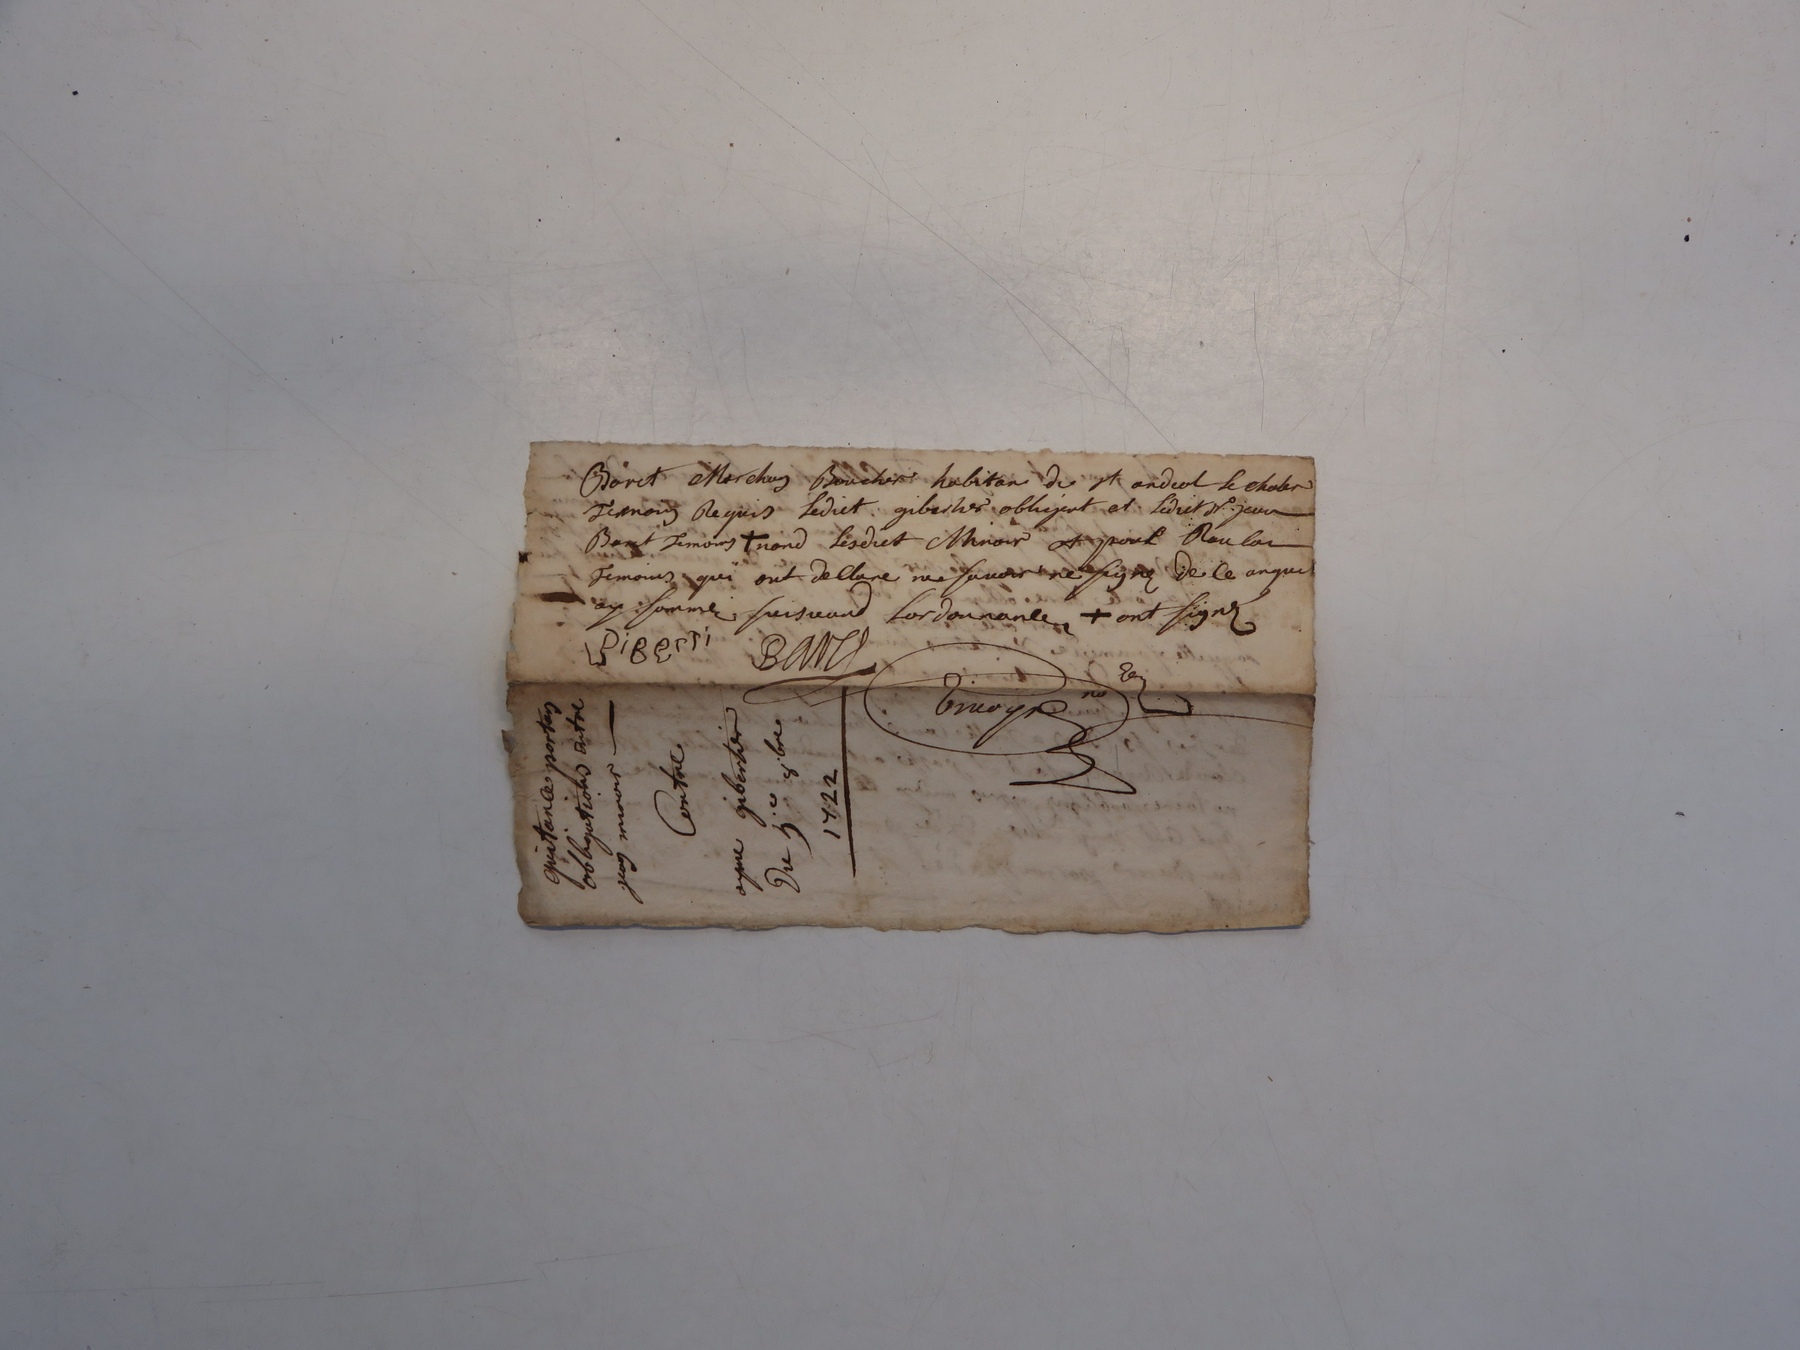 Baret Marchan Boucher habitan de st andeol le chaber
Temoins Requis ledict giberher obligent et ledict Sr jean
Baret Temoins + nond lesdict Miroir et paul
Temoins qui ont declare ne savoir ne signe de ce enquis
ay somme suivand lordonnance + ont signe
GiBerTi Baret
no Re
quitance portan
obbligations entre
jean miroir
Contre
giberher
Du 5e 8bre
1722